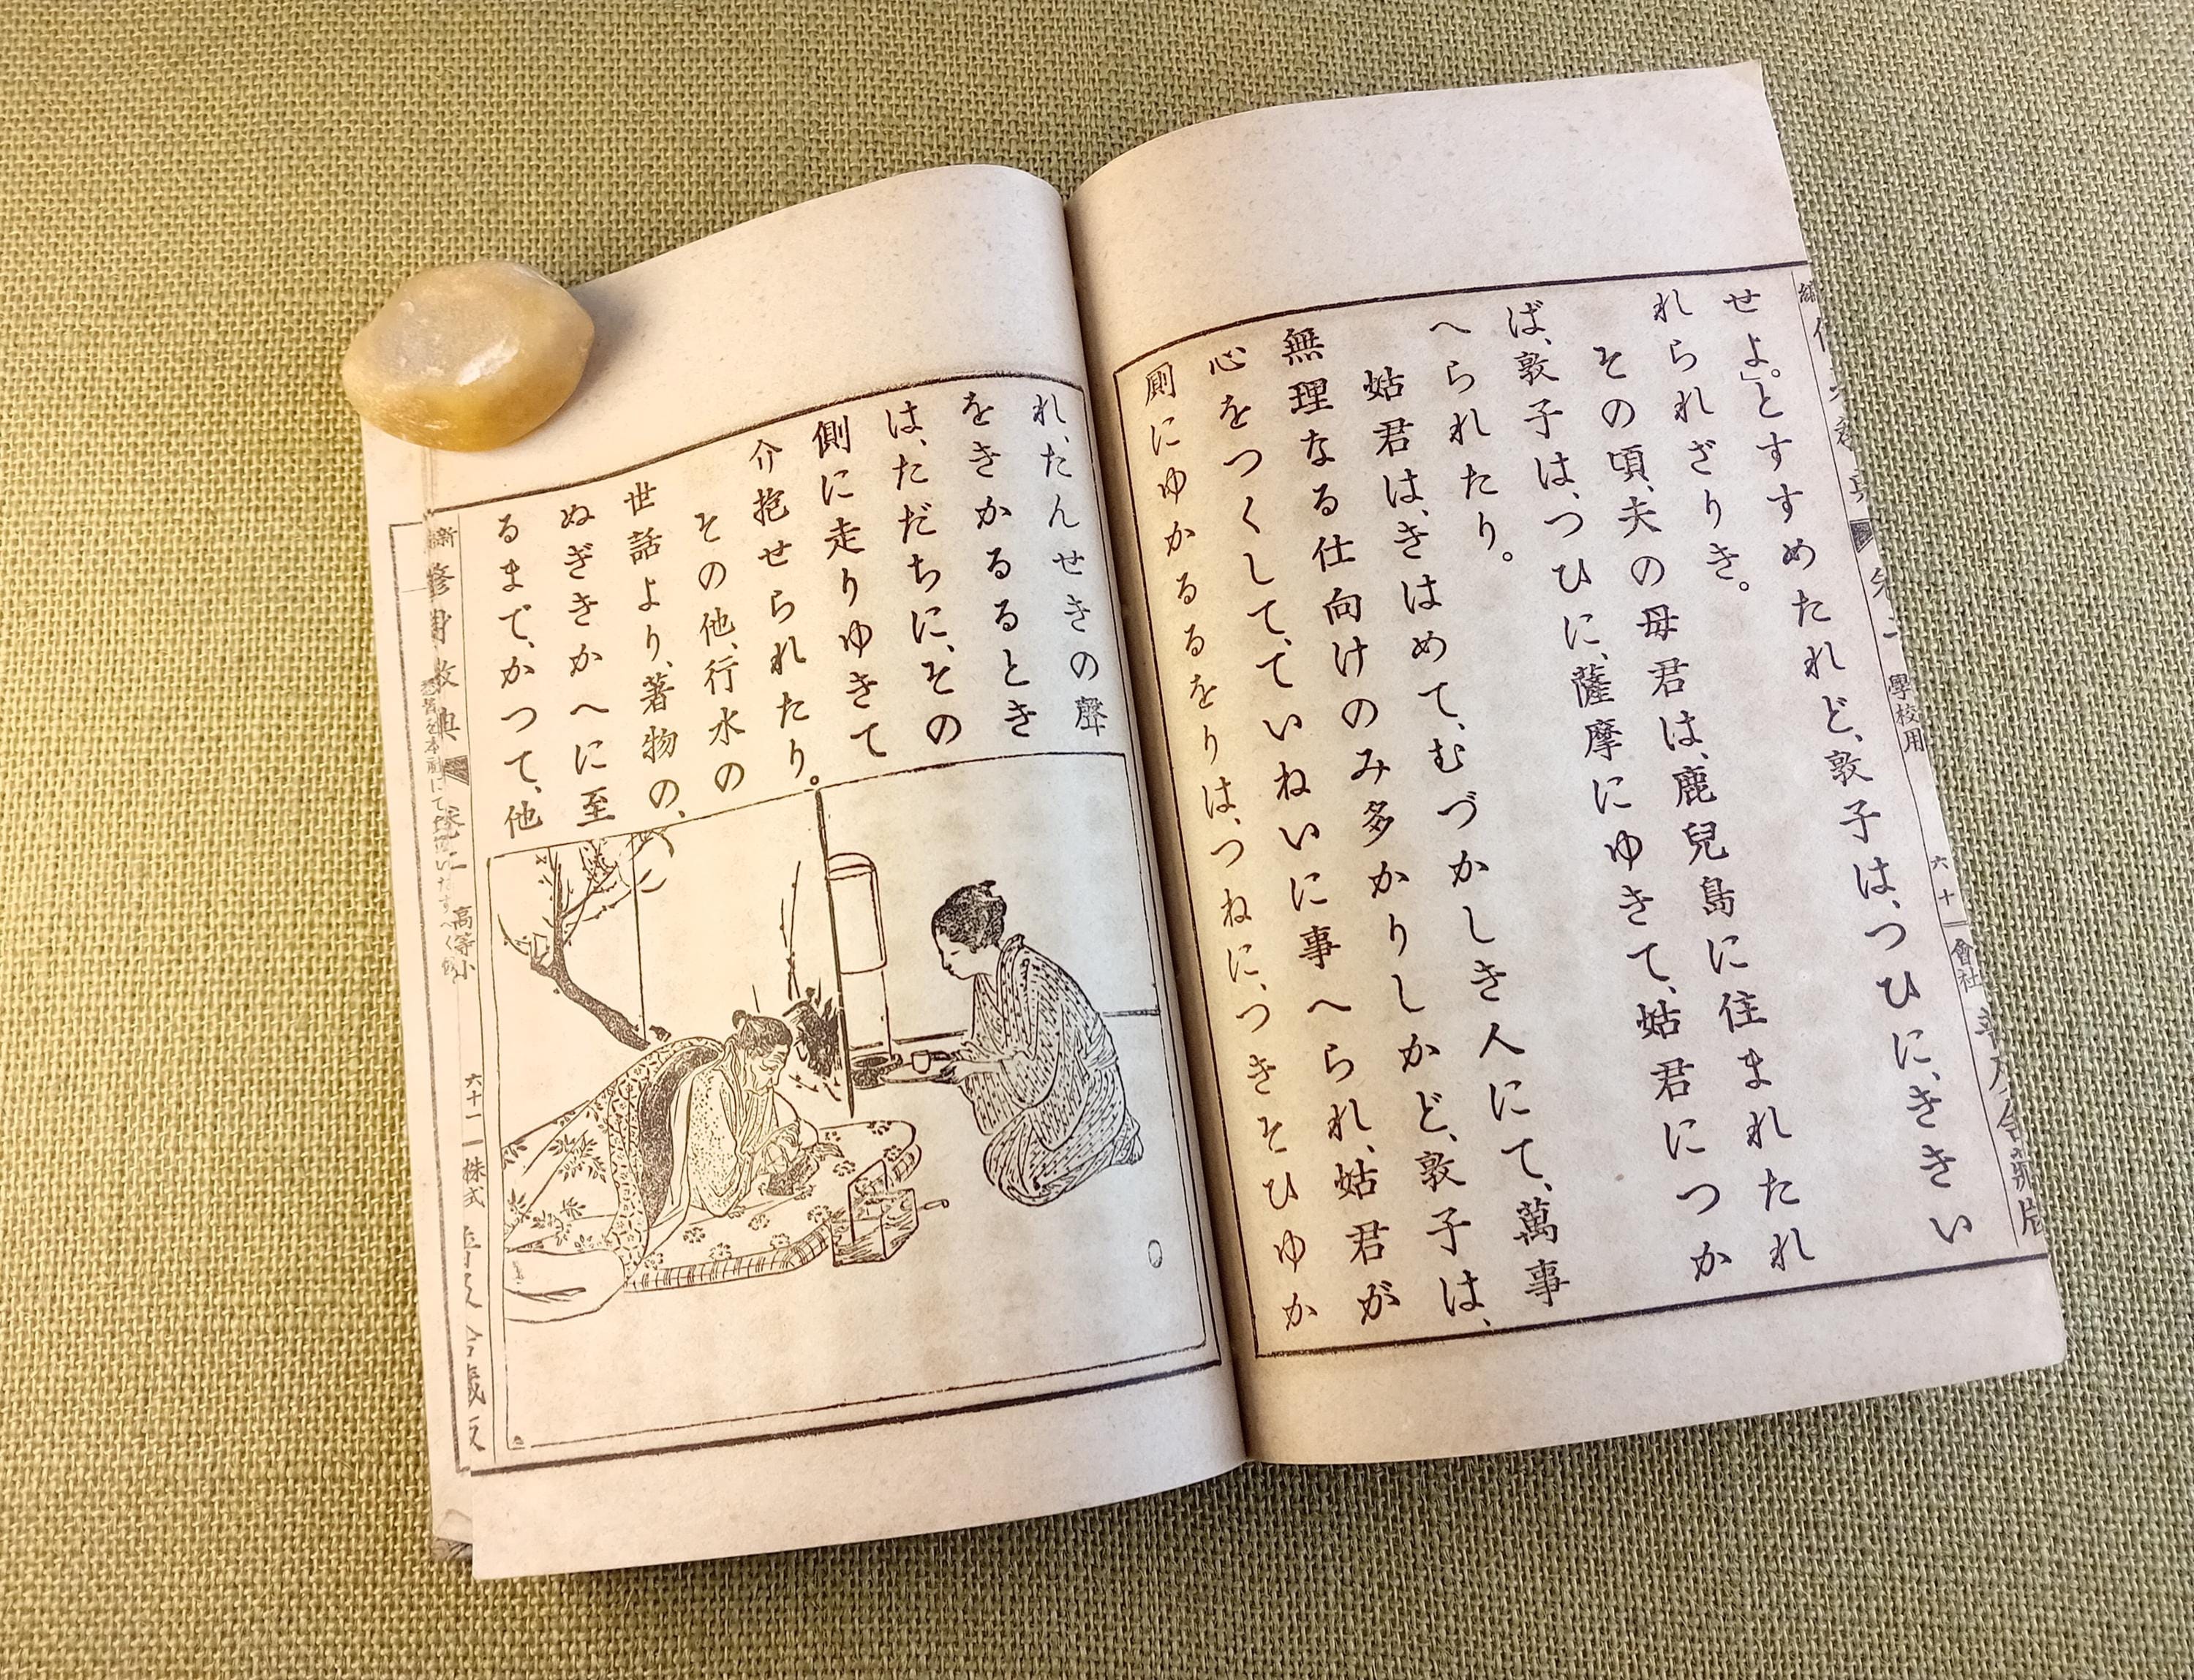 せよ。」とすすめたれど、敦子は、つひに、ききい
れられざりき。
その頃、夫の母君は、鹿兒島に住まれたれ
ば、敦子は、つひに、薩摩にゆきて、姑君につか
へられたり。
姑君は、きはめて、むづかしき人にて、萬事
無理なる仕向けのみ多かりしかど、敦子は、
心をつくして、ていねいに事へられ、姑君が
厠にゆかるるをりは、つねに、つきそひゆか
學校用
六十
會社
れ、たんせきの聲
をきかるるとき
は、ただちに、その
側に走りゆきて
介抱せられたり。
その他、行水の
世話より、著物の、
ぬぎきかへに至
るまで、かつて、他
新編
修身教典
高等小
六十一
株式